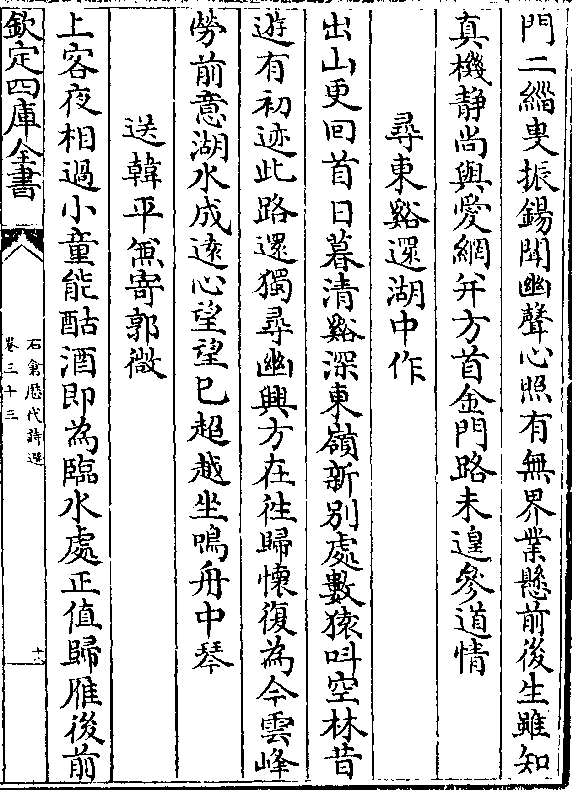 門二緇叟振錫聞幽聲心照有無界業懸前後生雖知
真機静尚與愛網并方首金門路未遑參道情
尋東谿還湖中作
出山更回首日暮清谿深東嶺新别處數猿呌空林昔
遊有初迹此路還獨尋幽興方在徃歸懷復為今雲峰
勞前意湖水成逺心望望已超越坐鳴舟中琴
送韓平兼寄郭微
上客夜相過小童能酤酒即為臨水處正值歸雁後前
欽定四庫全書
石倉歴代詩選
卷三十三